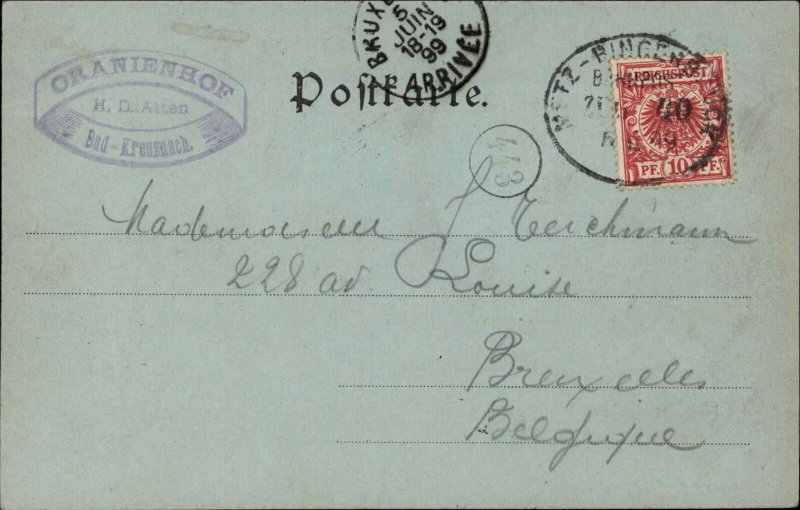 ORANIENHOF
H. D. Alten
Bad-Kreuznach.
BRUXE
5
JUIN
18-19
99
ARRIVÉE
Postkarte.
METZ-BINGERBRÜCK
REICHSPOST
PF. 10 PF.
443
Mademoiselle J Teichmann
228 av. Louise
Bruxelles
Belgique